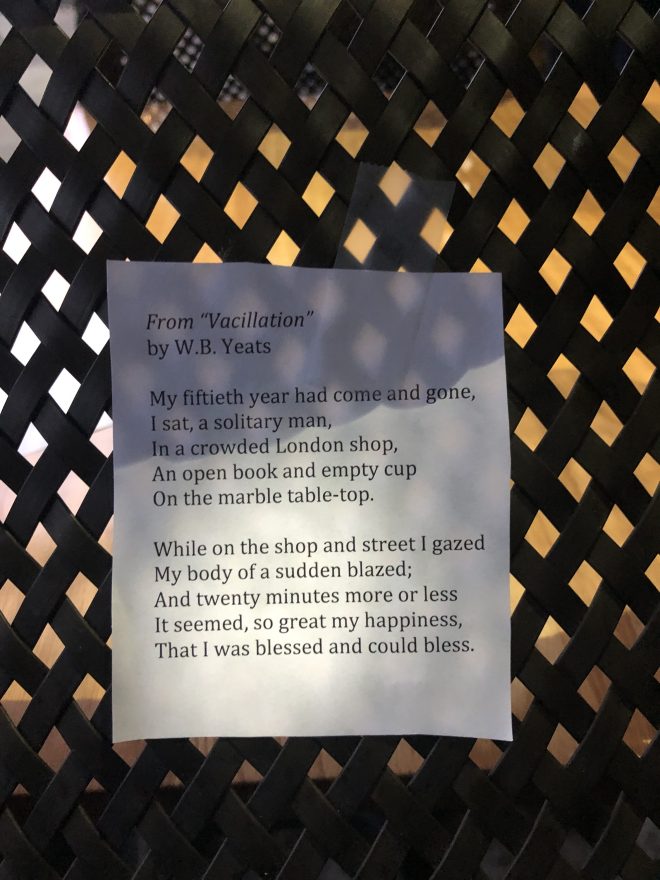 From “Vacillation”
by W.B. Yeats
My fiftieth year had come and gone,
I sat, a solitary man,
In a crowded London shop,
An open book and empty cup
On the marble table-top.
While on the shop and street I gazed
My body of a sudden blazed;
And twenty minutes more or less
It seemed, so great my happiness,
That I was blessed and could bless.